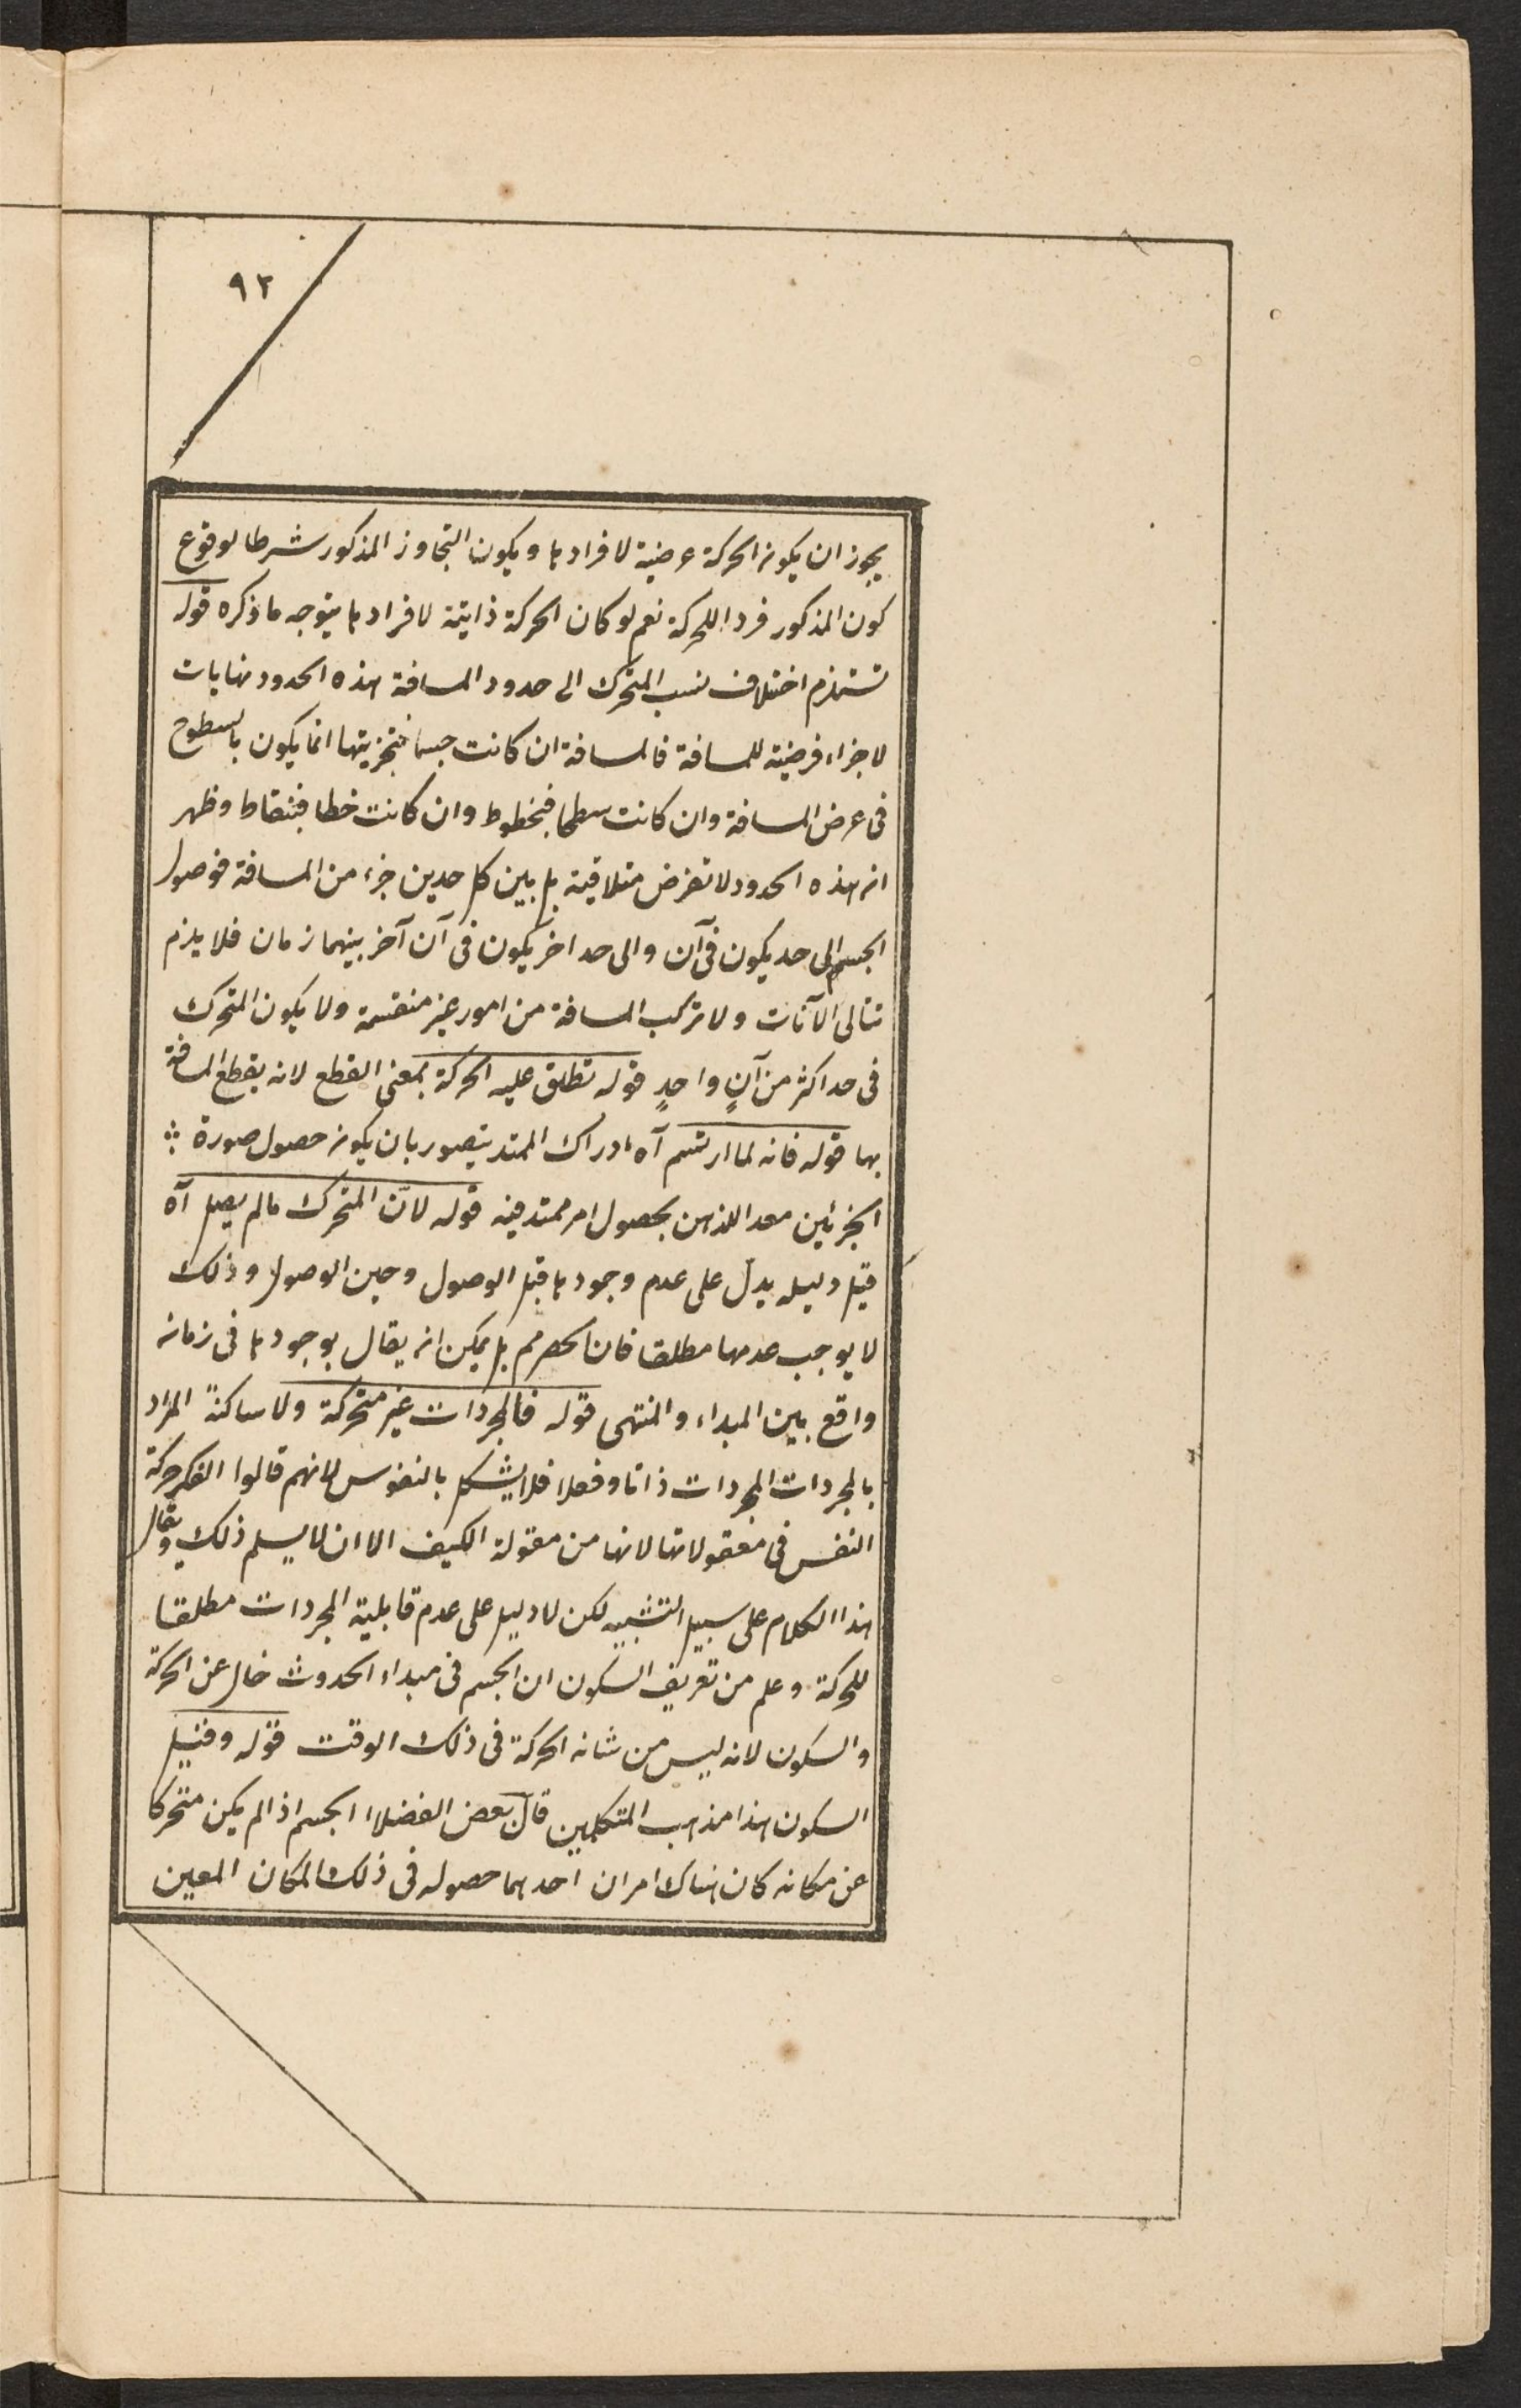 ٩٢
يجوز ان يكون الحركة عرضية لافرادها ويكون التجاوز المذكور شرطا لوقوع
كون المذكور فردا للحركة نعم لو كان الحركة ذاتية لافرادها يتوجه ما ذكره قوله
تستلزم اختلاف نسب المتحرك الى حدود المسافة هذه الحدود نهايات
لاجزاء فرضية للمسافة فالمسافة ان كانت جسما فتجزيتها انما يكون بالسطوح
فى عرض المسافة وان كانت سطحا فبخطوط وان كانت خطا فبنقاط وظهر
ان هذه الحدود لا تفرض متلاقية بل بين كل حدين جزء من المسافة فوصول
الجسم الى حد يكون فى آن والى حد اخر يكون فى آن آخر بينهما زمان فلا يلزم
تتالى الآنات ولا تركب المسافة من امور غير منقسمة ولا يكون المتحرك
فى حد اكثر من آنٍ واحدٍ قوله تطلق عليه الحركة بمعنى القطع لانه يقطع المسافة
بها قوله فانه لما ارتسم آه ادراك الممتد يتصور بان يكون حصول صورة
الجزئين معد اللذهن بحصول امر ممتد فيه قوله لانّ المتحرك مالم يصل آه
قيل دليله يدل على عدم وجودها قبل الوصول وحين الوصول وذلك
لا يوجب عدمها مطلقا فان الحصر مم بل يمكن ان يقال بوجودها فى زمان
واقع بين المبداء والمنتهى قوله فالمجردات غير متحركة ولا ساكنةً المراد
بالمجردات المجردات ذاتا وفعلا فلا يشكل بالنفوس لانهم قالوا الفكر حركة
النفس فى معقولاتها لانها من مقولة الكيف الا ان لا يسلم ذلك ويقال
هذا الكلام على سبيل التشبيه لكن لا دليل على عدم قابلية المجردات مطلقا
للحركة وعلم من تعريف السكون ان الجسم فى مبداء الحدوث خال عن الحركة
والسكون لانه ليس من شانه الحركة فى ذلك الوقت قوله وقيل
السكون هذا مذهب المتكلمين قال بعض الفضلاء الجسم اذا لم يكن متحركا
عن مكانه كان هناك امران احدهما حصوله فى ذلك المكان المعين